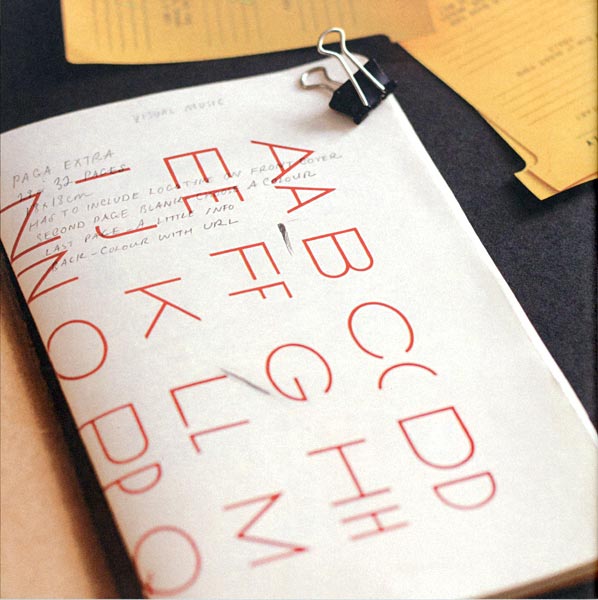 VISUAL MUSIC
PAGA EXTRA
32 PAGES
HAS TO INCLUDE LOGOTYPE ON FRONT COVER
SECOND PAGE BLANK CHOOSE A COLOUR
LAST PAGE - A LITTLE INFO
BACK - COLOUR WITH URL
AA B CC DD
EE FF G HH
I J K LL M
NN O PP Q